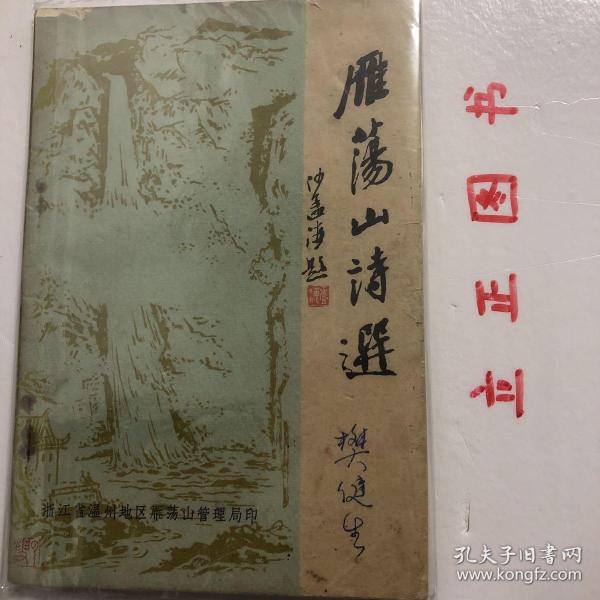 雁蕩山詩選
沙孟海題
樊健生
浙江省温州地区雁荡山管理局印
立正图书
孔夫子旧书网
www.kongfz.com